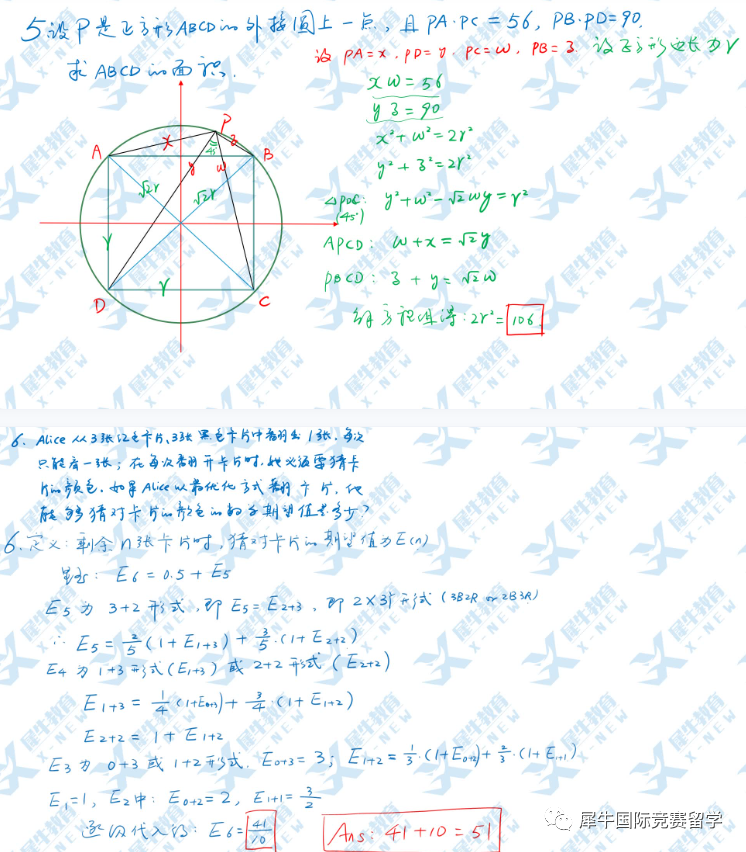 5.设P是正方形ABCD的外接圆上一点,且PA·PC=56,PB·PD=90.
求ABCD的面积.
设PA=x,PD=y,PC=w,PB=z.设正方形边长为r
xw=56
yz=90
x²+w²=2r²
y²+z²=2r²
△PDC: (45°) y²+w²-√2wy=r²
APCD: w+x=√2y
PBCD: z+y=√2w
解方程组得:2r²=106
P
A
x
45°
z
B
y
w
√2r
√2r
r
r
D
C
6. Alice从3张红色卡片,3张黑色卡片中翻出1张.每次
只能看一张;在每次翻开卡片时,她必须要猜卡
片的颜色.如果Alice以最优化方式翻卡片,他
能够猜对卡片的颜色的的期望值是多少?
6.定义:剩余n张卡片时,猜对卡片的期望值为E(n)
显然: E6=0.5+E5
E5为3+2形式,即E5=E2+3,即2×3形式(3B2R or 2B3R)
∴ E5=2/5(1+E1+3)+3/5·(1+E2+2)
E4为1+3形式(E1+3)或2+2形式(E2+2)
E1+3=1/4·(1+E0+3)+3/4·(1+E1+2)
E2+2=1+E1+2
E3为0+3或1+2形式. E0+3=3; E1+2=1/3·(1+E0+2)+2/3·(1+E1+1)
E1=1, E2中: E0+2=2, E1+1=3/2
逐个代入得: E6=41/10
Ans: 41+10=51
犀牛国际竞赛留学
犀牛教育
X-NEW